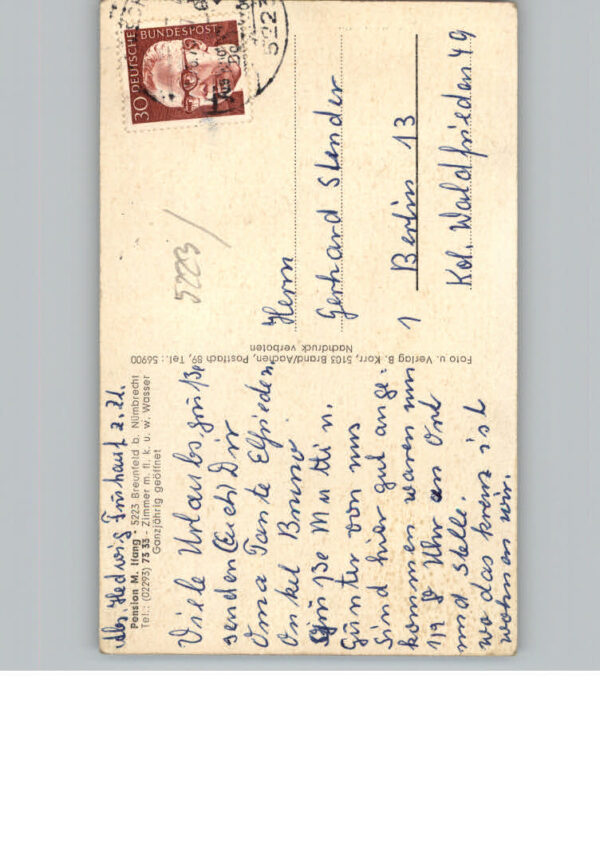 Abs. Hedwig
z. Zt.
Pension M. Ifang • 5223 Breunfeld b. Nümbrecht
Tel.: (02293) 73 33 - Zimmer m. fl. k. u. w. Wasser
Ganzjährig geöffnet
Viele Urlaubsgrüße
senden (Euch) Dir
Oma Tante Elfrieden
Onkel Bruno
Grüße Mutti u.
Günter von uns
Sind hier gut ange=
kommen waren um
Uhr an Ort
und Stelle.
wo das kreuz ist
wohnen wir.
Foto u. Verlag B. Korr, 5103 Brand/Aachen, Postfach 89, Tel.: 56900
Nachdruck verboten
30 DEUTSCHE BUNDESPOST
5223
5223
Herrn
Gerhard Slender
1 Berlin 13
Kol. Waldfrieden 49